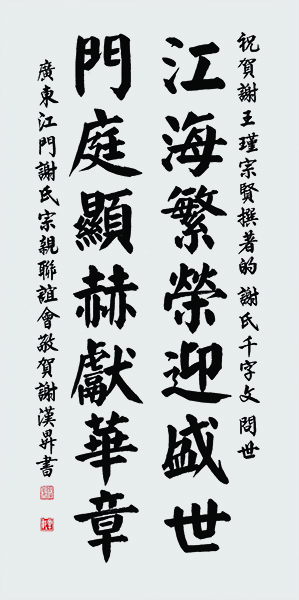 祝賀謝王瑾宗賢撰著的謝氏千字文問世
江海繁榮迎盛世
門庭顯赫獻華章
廣東江門謝氏宗親聯誼會敬賀謝漢昇書